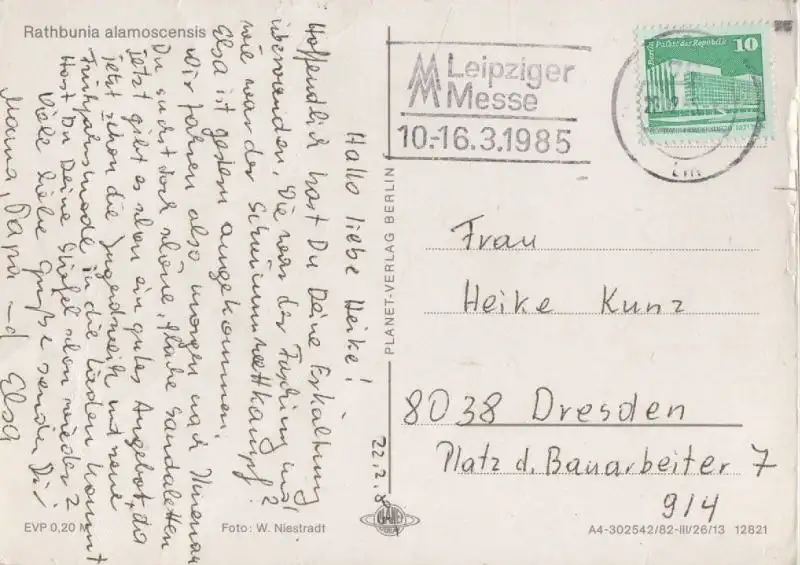 Rathbunia alamoscensis
Hallo liebe Heike!
Hoffentlich hast Du Deine Erkältung
überwunden. Wie war der Fasching und
wie war der Schwimmwettkampf?
Elsa ist gestern angekommen.
Wir fahren also morgen nach Ilmenau
Du suchst doch schöne, flache Sandaletten
jetzt gibt es schon ein gutes Angebot, da
jetzt schon die Jugendweih und neue
Frühjahrsmode in die Läden kommt
Hast Du Deine Stiefel schon wieder?
Viele liebe Grüße senden Dir
Mama, Papa und Elsa
22.2.8
EVP 0,20 M
Foto: W. Niestradt
PLANET-VERLAG BERLIN
PLANET
Leipziger
Messe
10.-16.3.1985
Berlin, Palast der Republik
10
Frau
Heike Kunz
8038 Dresden
Platz d. Bauarbeiter 7
9/4
A4-302542/82-III/26/13 12821